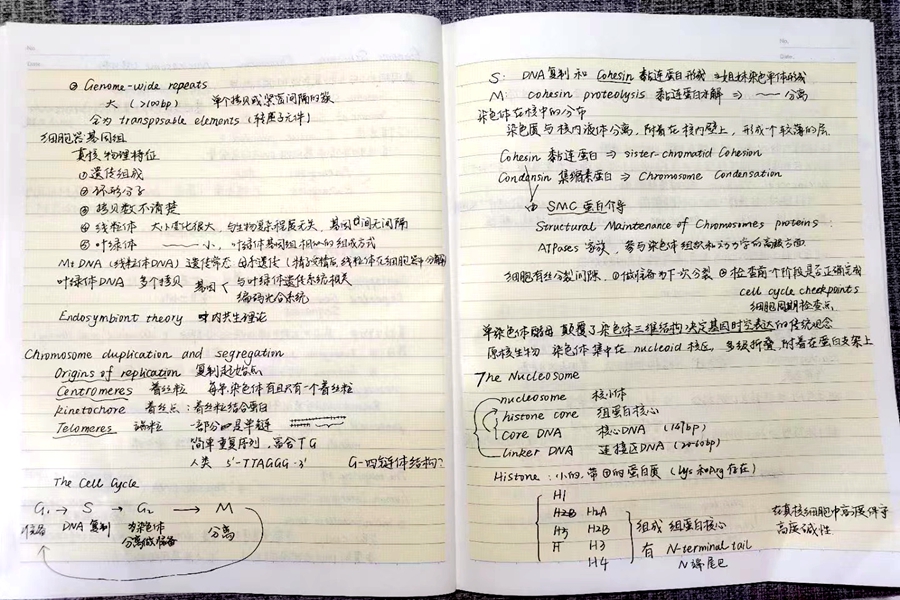 ② Genome-wide repeats
大 (>100bp) 单个拷贝或紧密间隔的簇
称为 transposable elements (转座子元件)
细胞器基因组
真核物理特征
① 遗传组成
② 环形分子
③ 拷贝数不清楚
④ 线粒体 大小变化很大，与生物复杂程度无关，基因间无间隔
⑤ 叶绿体 小，叶绿体基因组相似的组成方式
MtDNA (线粒体DNA) 遗传常态 母系遗传 (精子
叶绿体DNA 多个拷贝 基因 < 与叶绿体遗传系统相关
编码光合系统
Endosymbiont theory 内共生理论
Chromosome duplication and segregation
Origins of replication 复制起始点
Centromeres 着丝粒 每条染色体有且只有一个着丝粒
kinetochore 着丝点：着丝粒结合蛋白
Telomeres 端粒 一部分是单链
简单重复序列，富含TG
人类 5'-TTAGGG-3' G-四链体结构？
The Cell Cycle
G₁ → S → G₂ → M
准备 DNA复制 为染色体 分离
分离做准备
No.
S: DNA复制和 Cohesin 黏连蛋白形成 ⇒ 姐妹染色单体形成
M: cohesin proteolysis 黏连蛋白水解 ⇒ 分离
染色体在核中的分布
染色质与核内液体分离，附着在核内壁上，形成一个较薄的层
Cohesin 黏连蛋白 ⇒ sister-chromatid Cohesion
Condensin 凝缩素蛋白 ⇒ Chromosome Condensation
由 SMC 蛋白介导
Structural Maintenance of Chromosomes proteins:
ATPases 家族，参与染色体组织和动力学的高级方面
细胞有丝分裂间隙，①做准备为下次分裂 ②检查前个阶段是否正确完成
cell cycle checkpoints
细胞周期检查点
单染色体酵母 颠覆了染色体三维结构决定基因时空表达的传统观念
原核生物 染色体集中在 nucleoid 核区，多级折叠，附着在蛋白支架上
The Nucleosome
nucleosome 核小体
histone core 组蛋白核心
core DNA 核心DNA (147bp)
linker DNA 连接区DNA (20-60bp)
Histone: 小的，带⊕的蛋白质 (Lys和Arg存在)
H1
H2B H2A
H3 H2B 组成 组蛋白核心
H H3 有 N-terminal tail
H4 N端尾巴
在真核细胞中
高度碱性